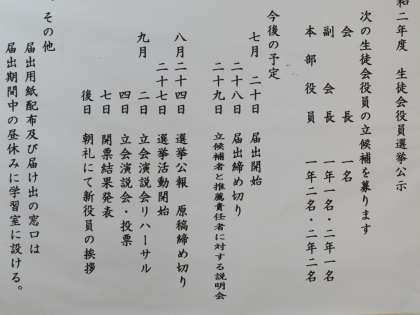 和二年度 生徒会役員選挙公示
次の生徒会役員の立候補を募ります
会長 一名
副会長 一年一名・二年一名
本部役員 一年二名・二年二名
今後の予定
七月 二十日 届出開始
二十八日 届出締め切り
二十九日 立候補者と推薦責任者に対する説明会
八月 二十四日 選挙公報 原稿締め切り
二十七日 選挙活動開始
九月 二日 立会演説会リハーサル
四日 立会演説会・投票
七日 開票結果発表
後日 朝礼にて新役員の挨拶
その他
届出用紙配布及び届け出の窓口は
届出期間中の昼休みに学習室に設ける。